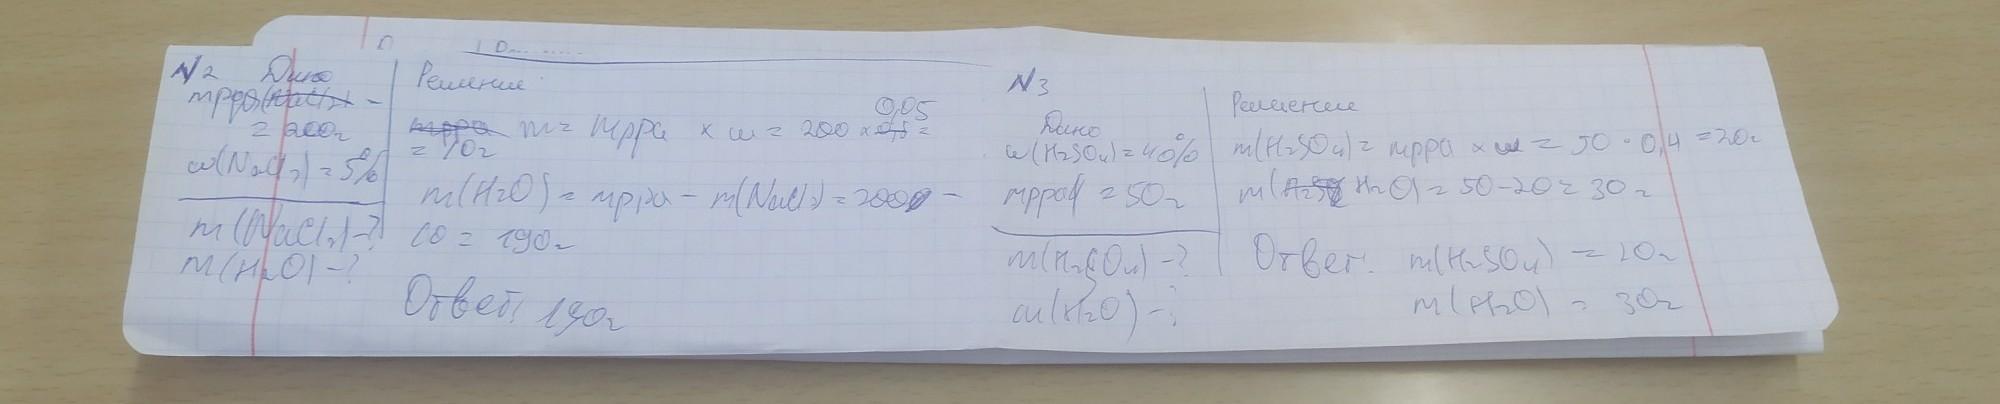 N2 Дано
mрра =
= 200г
ω(NaCl₂) = 5%
m(NaCl₂) - ?
m(H₂O) - ?
Решение
m = mрра × ω = 200 × 0,05 =
= 10г
m(H₂O) = mрра - m(NaCl₂) = 200 -
10 = 190г
Ответ: 190г
N3
Дано
ω(H₂SO₄) = 40%
mрра = 50г
m(H₂SO₄) - ?
m(H₂O) - ?
Решение
m(H₂SO₄) = mрра × ω = 50 · 0,4 = 20г
m(H₂O) = 50 - 20 = 30г
Ответ: m(H₂SO₄) = 20г
m(H₂O) = 30г